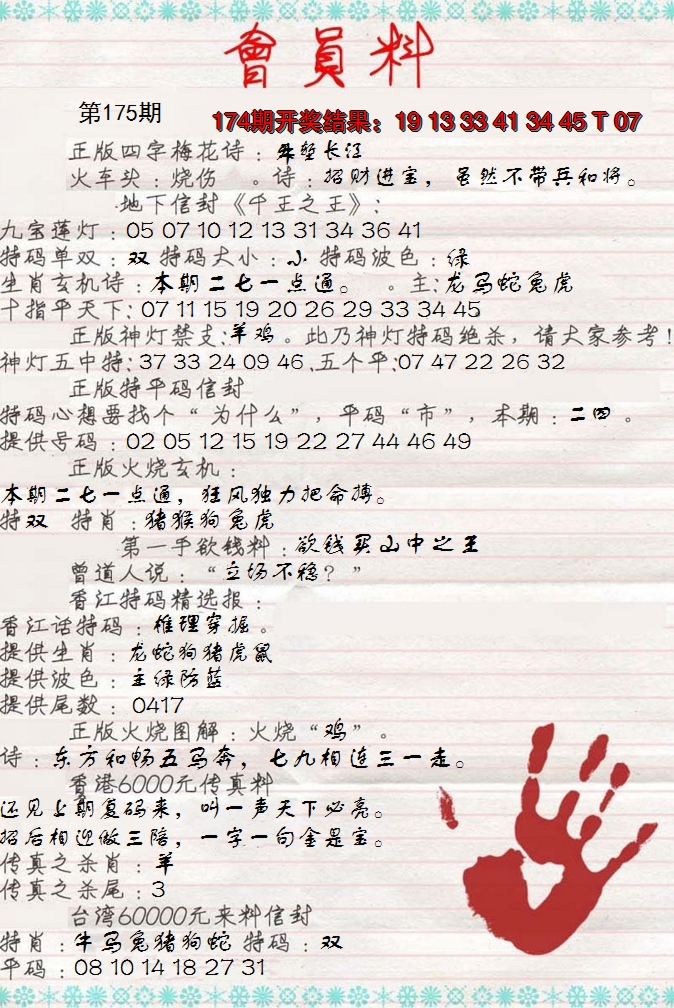 會員料
第175期
174期开奖结果：19 13 33 41 34 45 T 07
正版四字梅花诗：天堑长江
火车头：烧伤 。诗：招财进宝，虽然不带兵和将。
地下信封《千王之王》：
九宝莲灯：05 07 10 12 13 31 34 36 41
特码单双：双 特码大小：小 特码波色：绿
生肖玄机诗：本期二七一点通。 。主：龙马蛇兔虎
十指平天下：07 11 15 19 20 26 29 33 34 45
正版神灯禁支：羊鸡。此乃神灯特码绝杀，请大家参考！
神灯五中特：37 33 24 09 46.五个平：07 47 22 26 32
正版特平码信封
特码心想要找个“为什么”，平码“市”，本期：二四。
提供号码：02 05 12 15 19 22 27 44 46 49
正版火烧玄机：
本期二七一点通，狂风独力把命搏。
特双 特肖：猪猴狗兔虎
第一手欲钱料：欲钱买山中之王
曾道人说：“立场不稳？”
香江特码精选报：
香江话特码：推理穿掘。
提供生肖：龙蛇狗猪虎鼠
提供波色：主绿防蓝
提供尾数：0417
正版火烧图解：火烧“鸡”。
诗：东方和畅五马奔，七九相连三一走。
香港6000元传真料
还见上期复码来，叫一声天下必亮。
招后相迎做三陪，一字一句金是宝。
传真之杀肖：羊
传真之杀尾：3
台湾60000元来料信封
特肖：牛马兔猪狗蛇 特码：双
平码：08 10 14 18 27 31